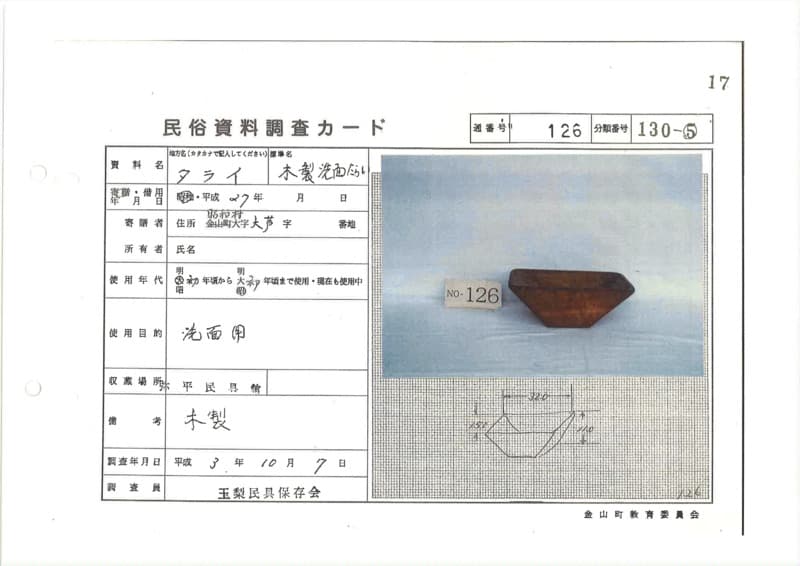 17
民俗資料調査カード
通番号 126 分類番号 130-⑤
資料名 地方名(カタカナで記入してください) タライ 標準名 木製洗面たらい
寄贈・借用年月日 昭和・平成 27年 月 日
寄贈者 住所 昭和村 金山町大字 大芦 字 番地
所有者 氏名
使用年代 明大昭 初年頃から 明大昭 初年頃まで使用・現在も使用中
使用目的 洗面用
収蔵場所 弥平民具館
備考 木製
調査年月日 平成 3年 10月 7日
調査員 玉梨民具保存会
NO-126
320
150
110
126
金山町教育委員会